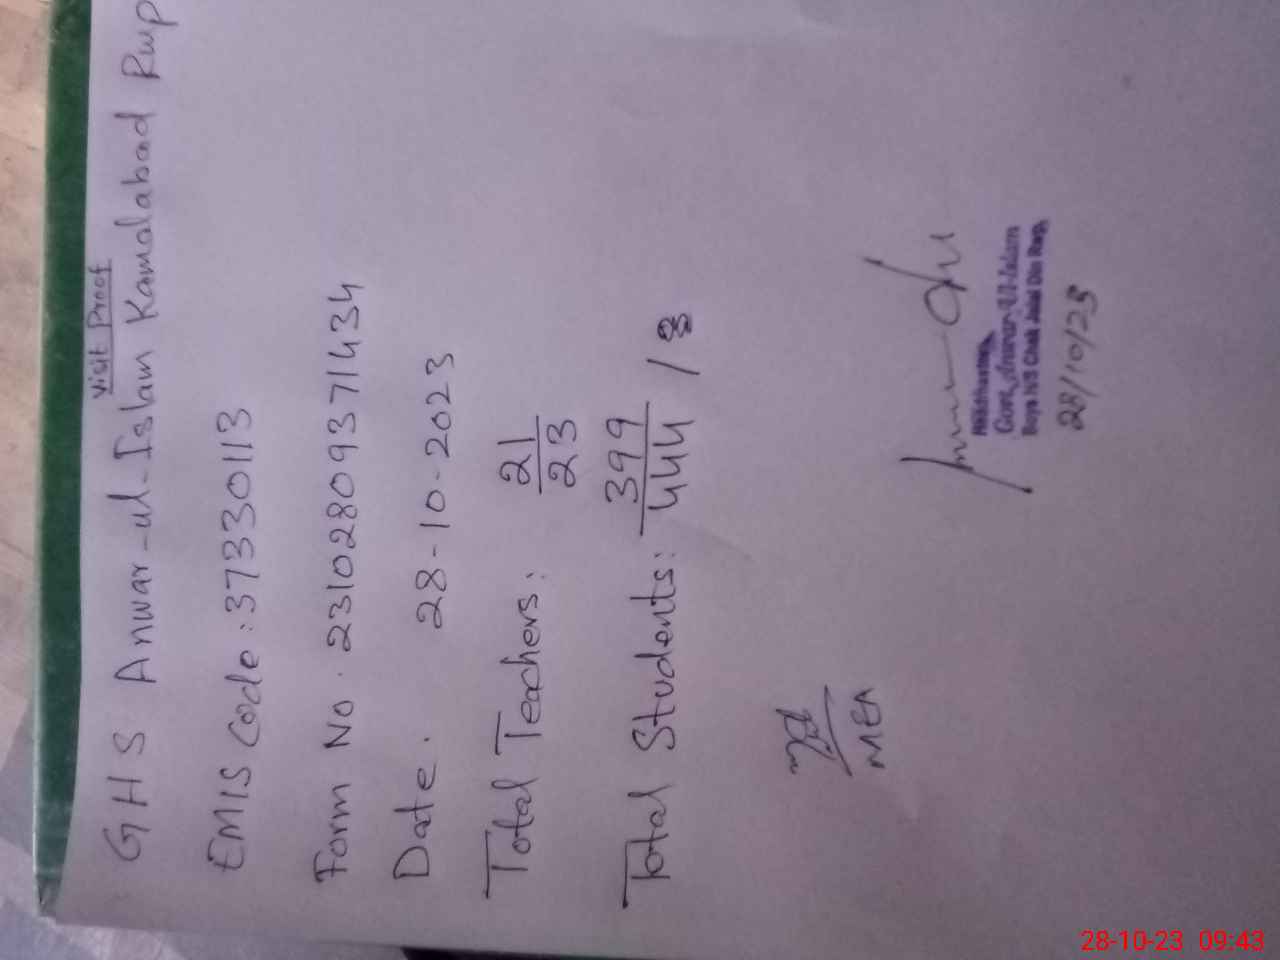 Visit Proof
GHS Anwar-ul-Islam Kamalabad Rwp
EMIS Code: 37330113
Form No. 23102809371434
Date. 28-10-2023
Total Teachers: 21/23
Total Students: 399/444 /
MEA
Headmaster
Govt. Anwar-Ul-Islam
Boys H/S Chak Jalal Din Rwp.
28/10/23
28-10-23 09:43